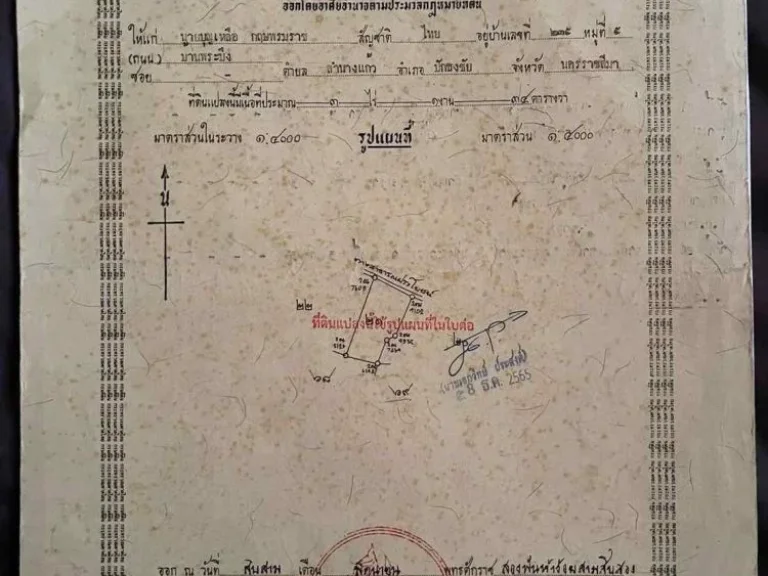 ออกโดยอาศัยอำนาจตามประมวลกฎหมายที่ดิน
ให้แก่ นายบุญเหลือ กฤษพรมราช สัญชาติ ไทย อยู่บ้านเลขที่ ๒๓๕ หมู่ที่ ๕
(ถนน) บานพระบึง
ซอย - ตำบล ลำนางแก้ว อำเภอ ปักธงชัย จังหวัด นครราชสีมา
ที่ดินแปลงนี้มีเนื้อที่ประมาณ ๓ ไร่ ๑ งาน ๓๔ ตารางวา
มาตราส่วนในระวาง ๑:๔๐๐๐ รูปแผนที่ มาตราส่วน ๑:๔๐๐๐
น
ทางสาธารณประโยชน์
๒๒
ที่ดินแปลงนี้ใช้รูปแผนที่ในใบต่อ
๖๘ ๖๙
๘ ธ.ค. 2565
ออก ณ วันที่ สิบสาม เดือน มิถุนายน พุทธศักราช สองพันห้าร้อยสามสิบสอง